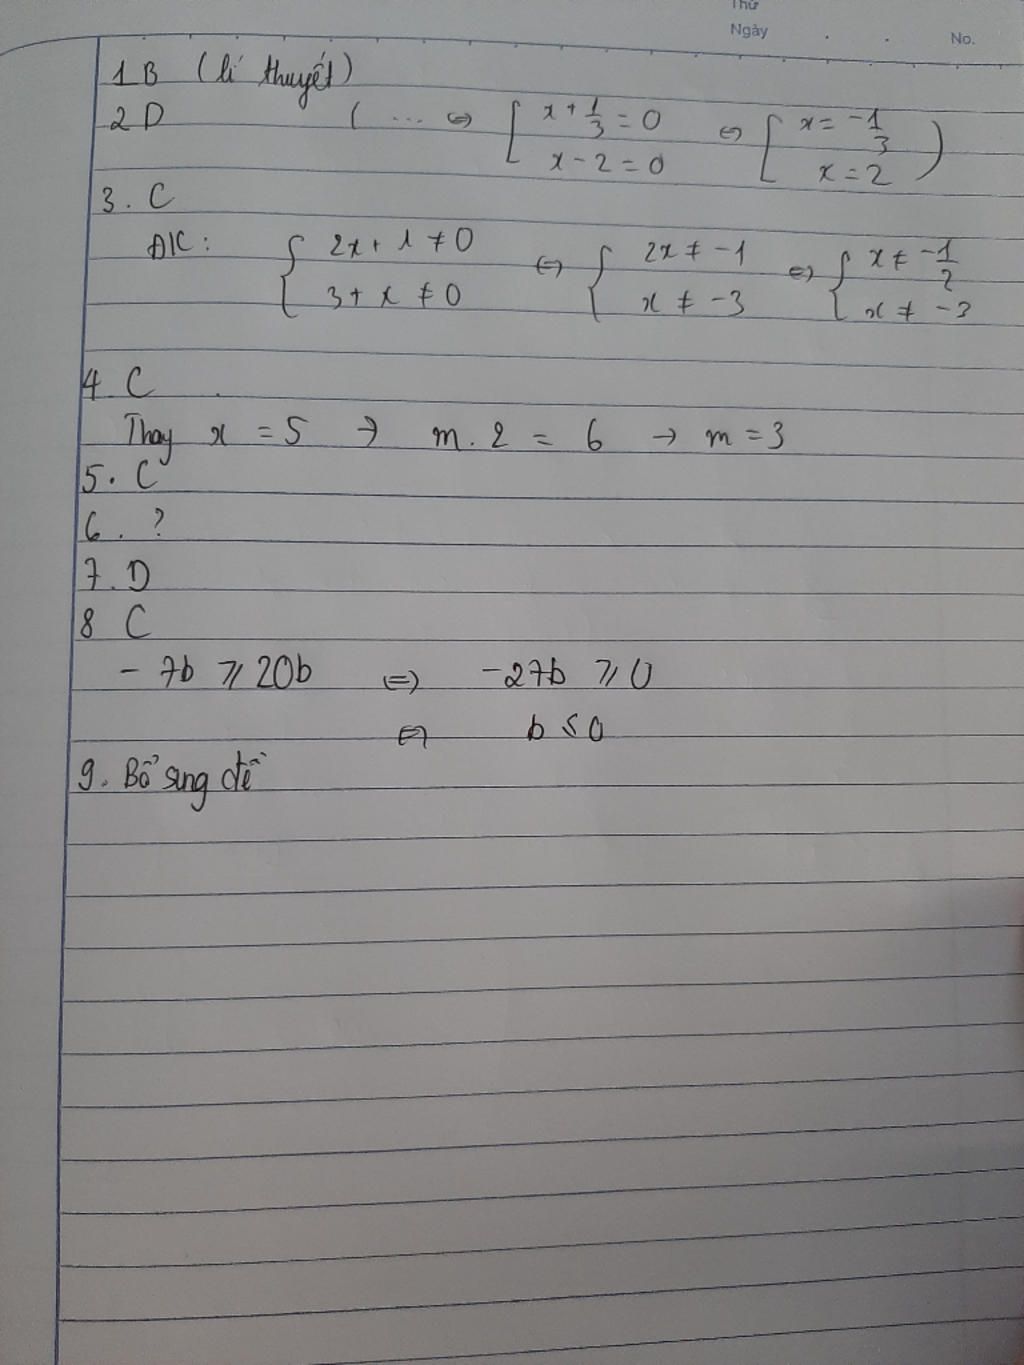 Thứ
Ngày . . No.
1B (lí thuyết)
2D ( ... ⇔ [ x + 1/3 = 0 ⇔ [ x = -1/3 )
x - 2 = 0 x = 2
3. C
ĐK: { 2x + 1 ≠ 0 ⇔ { 2x ≠ -1 ⇔ { x ≠ -1/2
3 + x ≠ 0 x ≠ -3 x ≠ -3
4 C
Thay x = 5 → m. 2 = 6 → m = 3
5. C
6. ?
7. D
8 C
- 7b ⩾ 20b ⇔ -27b ⩾ 0
⇔ b ≤ 0
9. Bổ sung đề